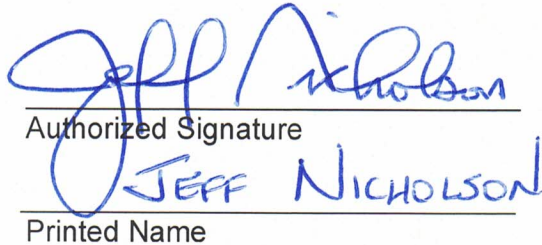 Jeff Nicholson
Authorized Signature
JEFF NICHOLSON
Printed Name